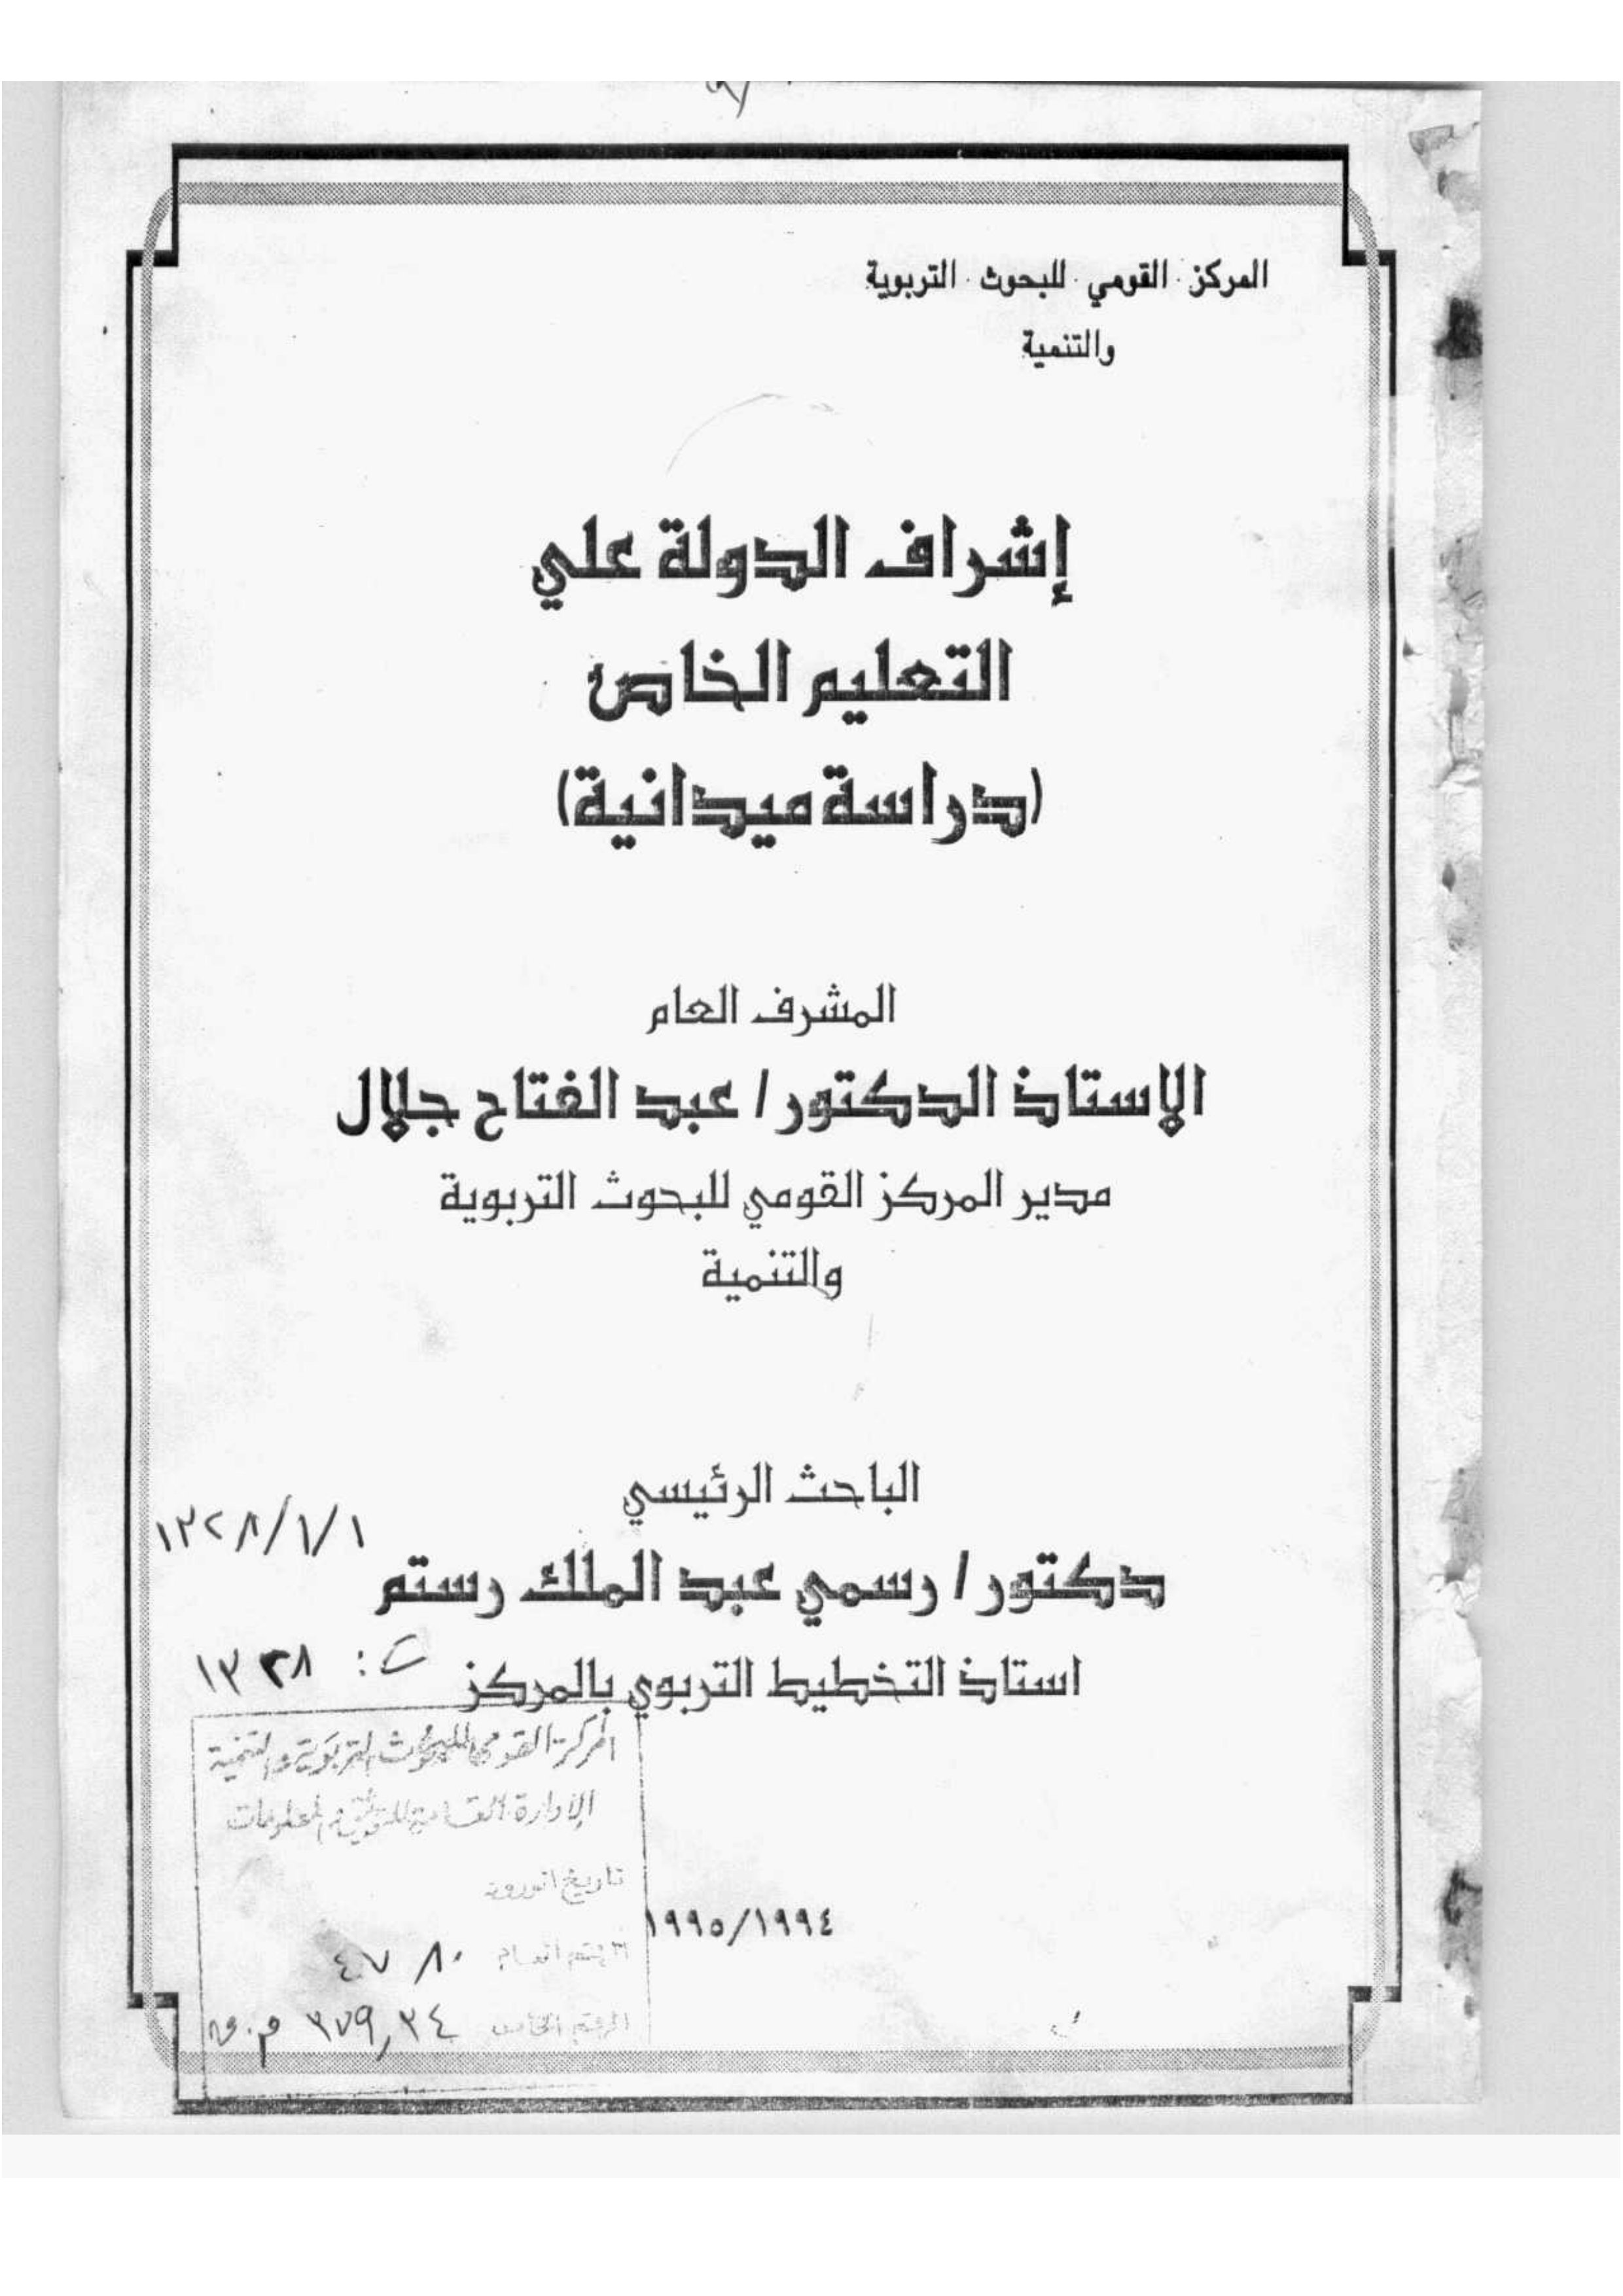 المركز القومي للبحوث التربوية
والتنمية
إشراف الدولة علي
التعليم الخاص
(دراسة ميدانية)
المشرف العام
الاستاذ الدكتور / عبد الفتاح جلال
مدير المركز القومي للبحوث التربوية
والتنمية
الباحث الرئيسي
١٣٢٨/١/١
دكتور / رسمي عبد الملك رستم
ت : ١٣٢٨
استاذ التخطيط التربوي بالمركز
المركز القومي للبحوث التربوية والتنمية
الإدارة العامة للتوثيق والمعلومات
تاريخ الورود
١٩٩٥/١٩٩٤
الرقم العام
الرقم الخاص ٣٧٩,٣٤